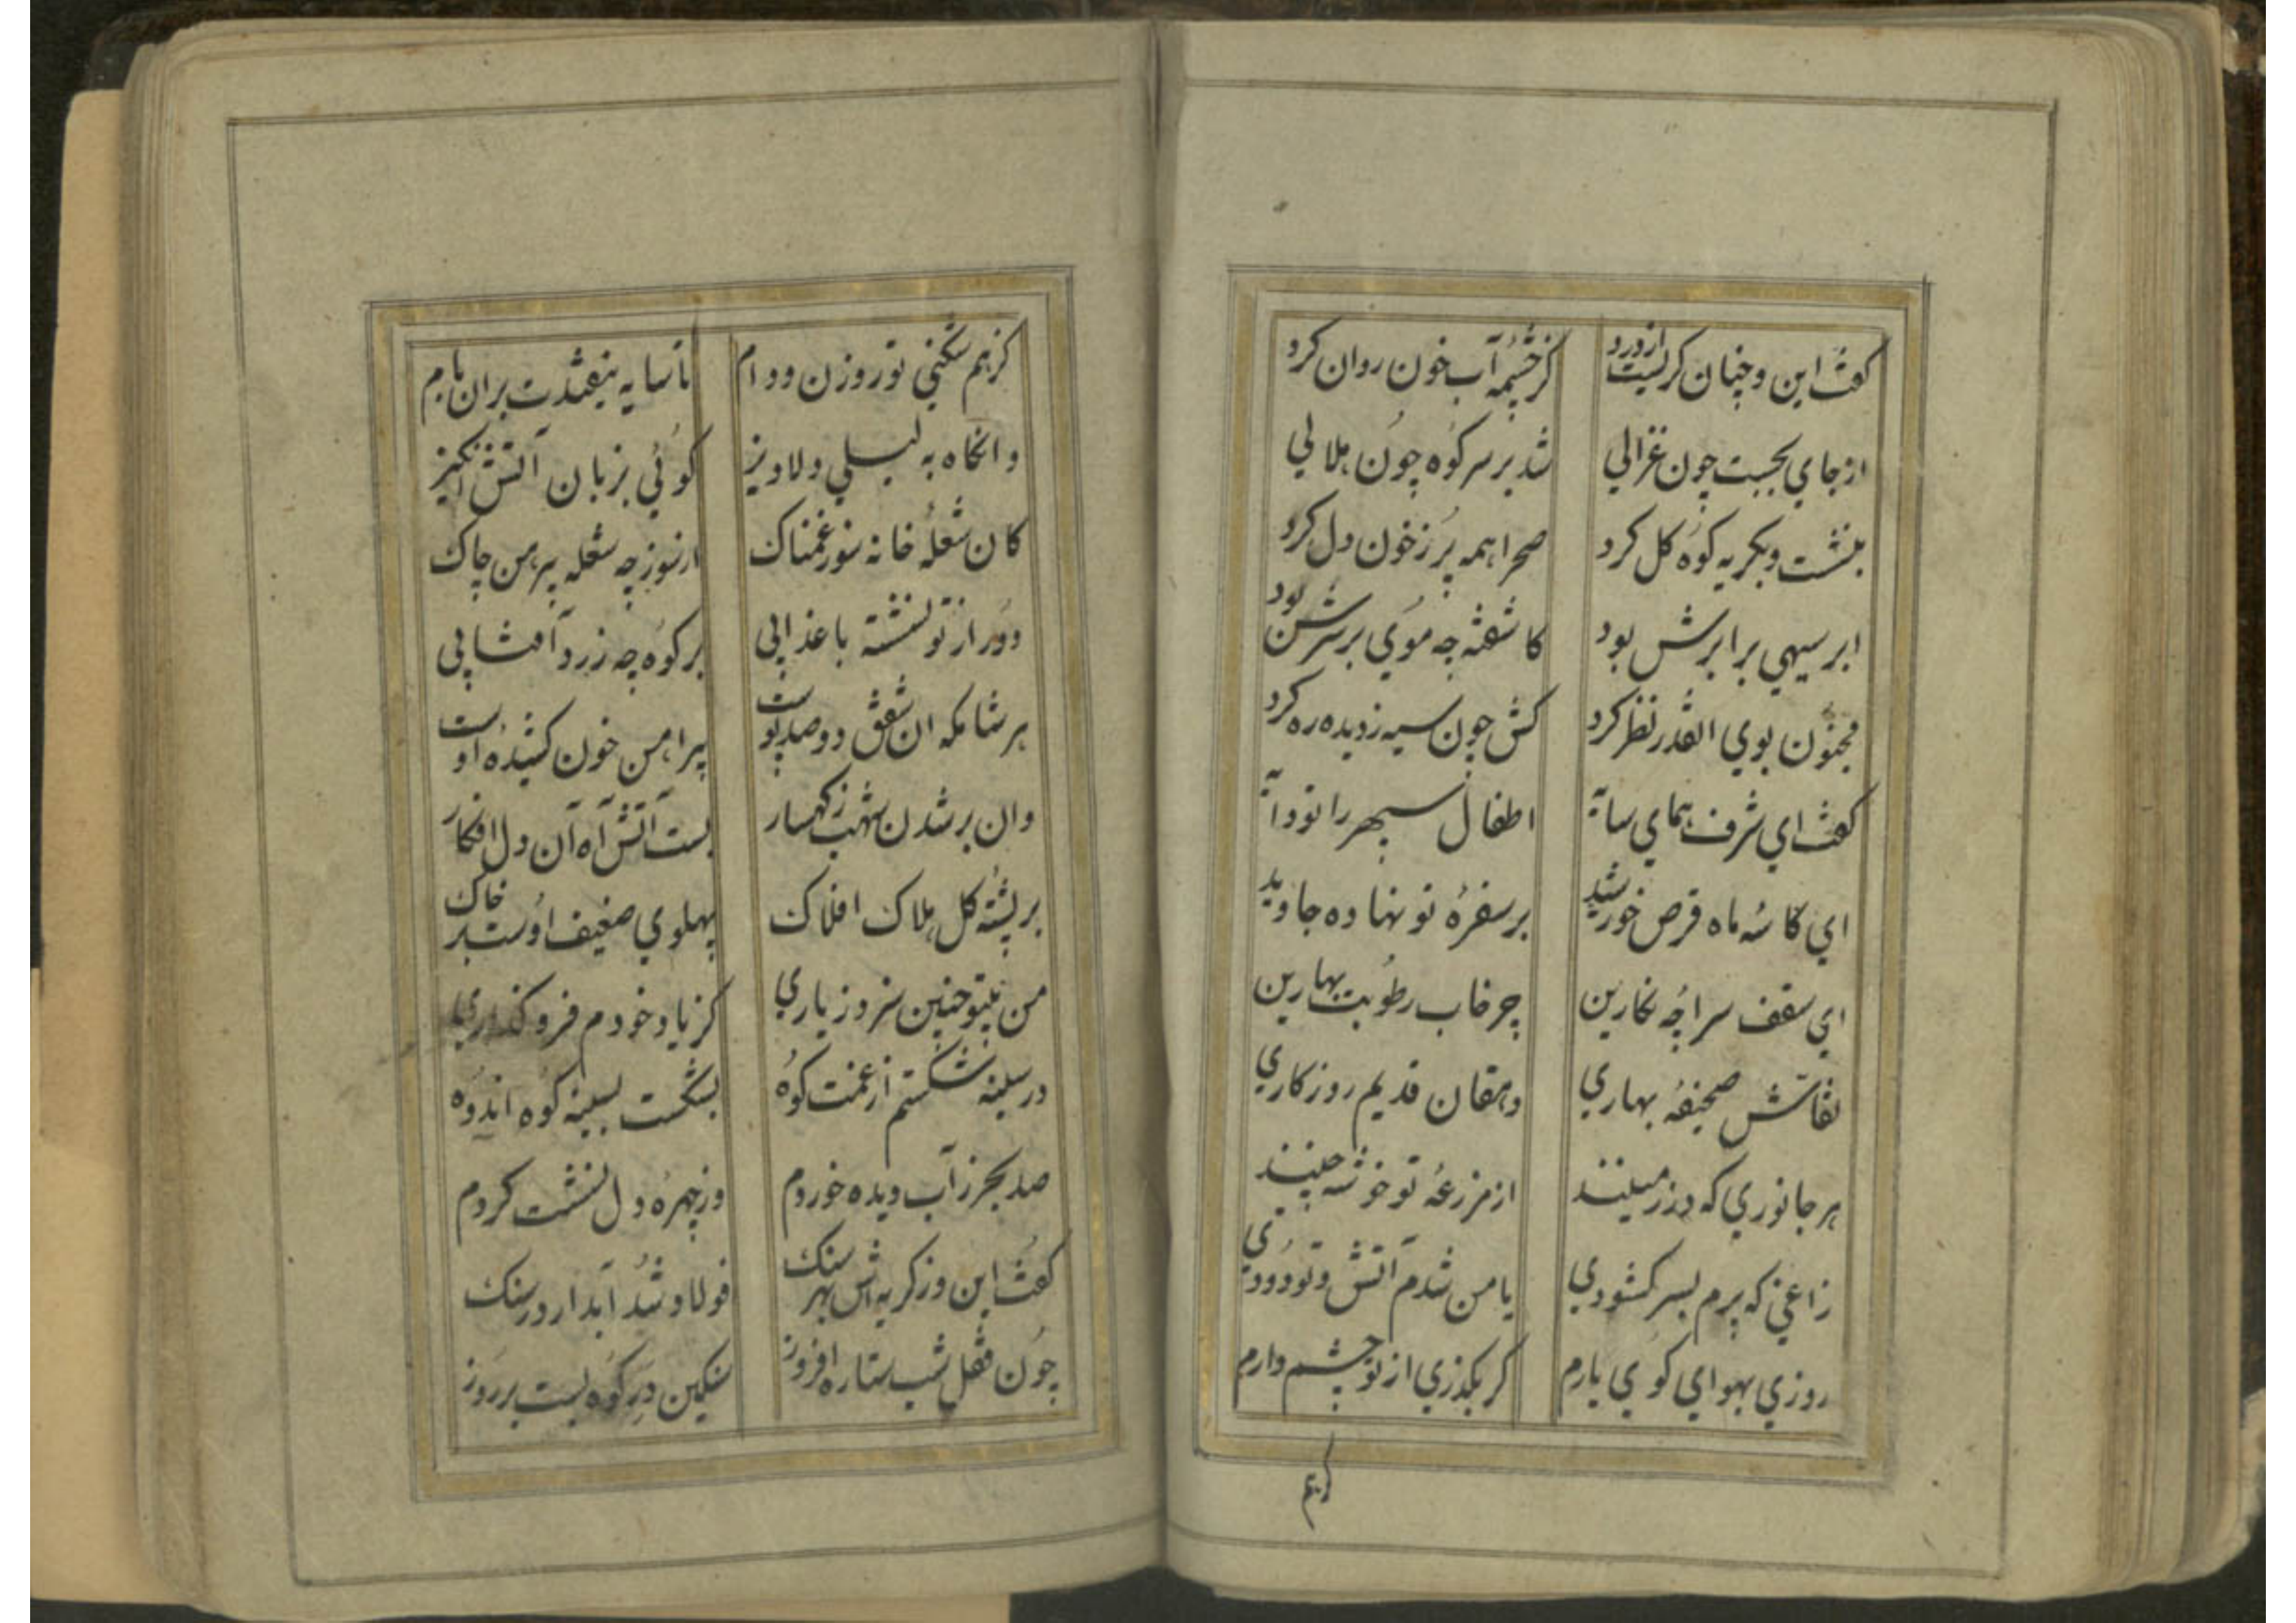 کفت این و چنان کریست از درد کز چشمه آب خون روان کرد
از جای بجست چون غزالی شد بر سر کوه چون هلالی
بنشست و بکریه کوه کل کرد صحرا همه پر ز خون دل کرد
ابر سیهی برابرش بود کاشفته چه موی بر سرش بود
مجنون بوی القدر نظر کرد کش چون سیه ز دیده ره کرد
کفت ای شرف همای سایه اطفال سپهر را تو دایه
ای کاسهٔ ماه قرص خورشید بر سفرهٔ تو نهاده جاوید
ای سقف سراچه نکارین چرخاب رطوبت بهارین
نقاش صحیفهٔ بهاری دهقان قدیم روزکاری
هر جانوری که در زمینند از مزرعهٔ تو خوشه چینند
زاغی که پرم بسر کشودی یا من شدم آتش و تو دودی
روزی بهوای کوی یارم کر بکذری از تو چشم دارم
کزهم
کزهم شکنی تو روزن و دام تا سایه نیفتدت بران بام
وانکاه به لیلی دلاویز کوئی بزبان آتش انکیز
کان شعلهٔ خانه سوز غمناک از سوز چه شعله پیرهن چاک
دور از تو نشسته با عذابی بر کوه چه زرد آفتابی
هر شام که ان شفق دو صد پوست پیراهن خون کشیدهٔ اوست
وان بر شدن شهب ز کهسار بست آتش آه آن دل افکار
بر پشتهٔ کل هلاک افلاک پهلوی ضعیف اوست بر خاک
من بیتو چنین بروز یاری کز یاد خودم فرو کذاری
در سینه شکستم از غمت کوه بشکست بسینه کوه اندوه
صد بحر ز آب دیده خوردم وز چهرهٔ دل نشست کردم
کفت این وز کریه اش بهر سنک فولاد شد آبدار در سنک
چون قفل شب ستاره افروز سنکین در کوه بست بر روز